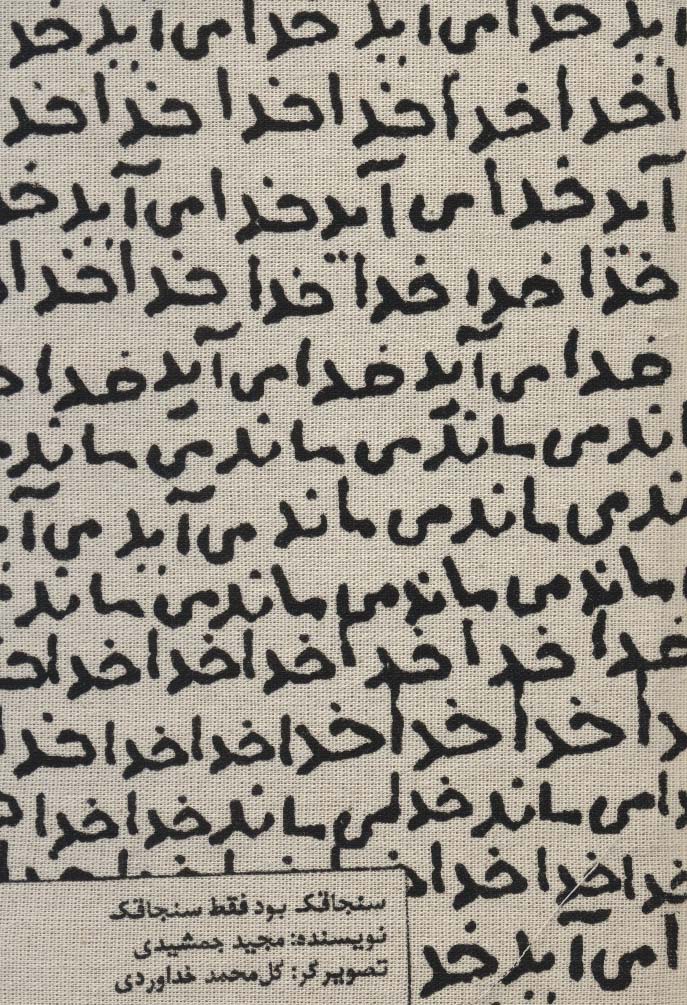 اید خدا می اید خدا می اید خد
اخدا خدا خدا خدا خدا خد
آید خدا می آید خدا می آید خد
خدا خدا خدا خدا خدا خدا
خدا می آید خدا می آید خدا
اند می ماند می ماند می ماند
ند می ماند می ماند می آید می آ
ماند می ماند می ماند می ماند
خدا خدا خدا خدا خدا خدا خ
دا خدا خدا خدا خدا خدا خدا
دا می ماند خدا می ماند خدا خدا
خدا خدا خدا
ا می آید خد
سنجاقک بود فقط سنجاقک
نویسنده: مجید جمشیدی
تصویرگر: گل‌محمد خداوردی